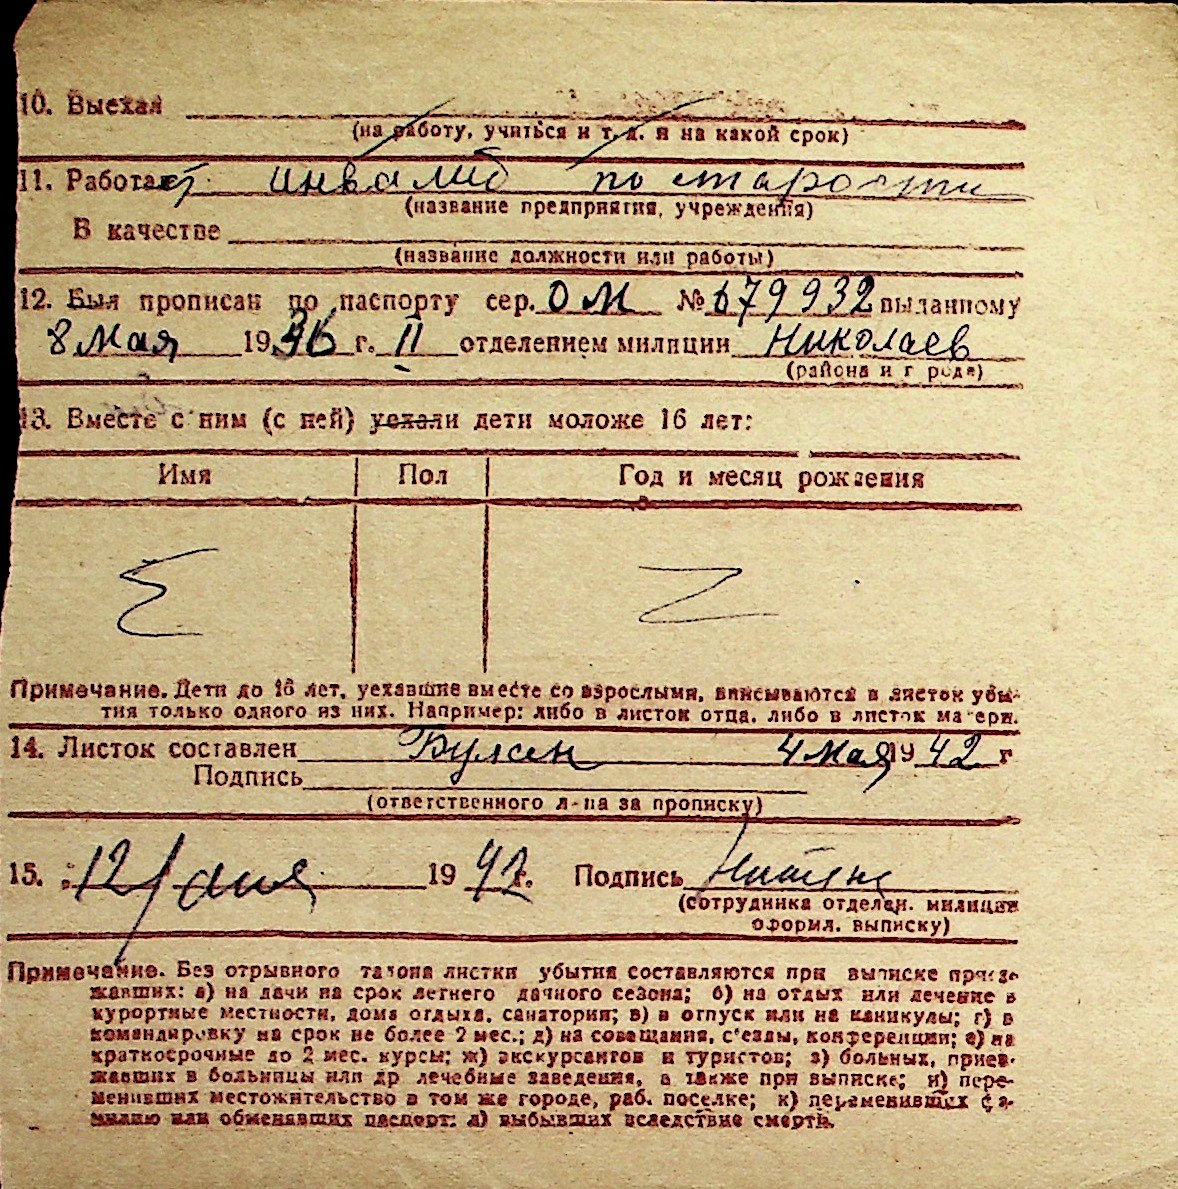 10. Выехал
(на работу, учиться и т. д. и на какой срок)
11. Работает инвалид по старости
(название предприятия, учреждения)
В качестве
(название должности или работы)
12. Был прописан по паспорту сер. ОМ № 679932 выданному
8 Мая 1936 г. II отделением милиции Николаев
(района и города)
13. Вместе с ним (с ней) уехали дети моложе 16 лет:
Имя Пол Год и месяц рождения
Примечание. Дети до 16 лет, уехавшие вместе со взрослыми, вписываются в листок убы-
тия только одного из них. Например: либо в листок отца, либо в листок матери.
14. Листок составлен 4 мая 1942 г
Подпись
(ответственного л-ца за прописку)
15. 12 1942 г. Подпись
(сотрудника отделен. милиции
оформл. выписку)
Примечание. Без отрывного талона листки убытия составляются при выписке приез-
жавших: а) на дачи на срок летнего дачного сезона; б) на отдых или лечение в
курортные местности, дома отдыха, санатория; в) в отпуск или на каникулы; г) в
командировку на срок не более 2 мес.; д) на совещания, с'езды, конференции; е) на
краткосрочные до 2 мес. курсы; ж) экскурсантов и туристов; з) больных, приез-
жавших в больницы или др лечебные заведения, а также при выписке; и) пере-
менивших местожительство в том же городе, раб. поселке; к) переменивших фа-
милию или обменявших паспорт; л) выбывших вследствие смерти.